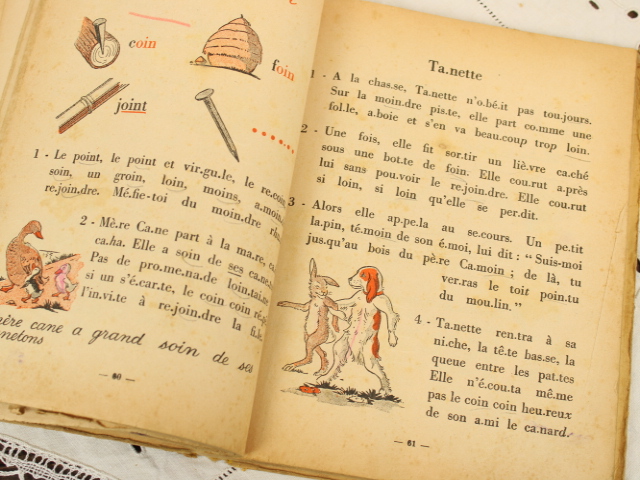 coin
foin
joint
1 - Le point, le point et vir.gu.le, le re.coin,
soin, un groin, loin, moins, a.moin.
re.join.dre. Mé.fie-toi du moin.dre
2 - Mè.re Ca.ne part à la ma.re,
ca.ha. Elle a soin de ses ca.ne
Pas de pro.me.na.de loin.tai.ne
si un s'é.car.te, le coin coin
l'in.vi.te à re.join.dre la fi.le
mère cane a grand soin de ses
netons
— 60 —
Ta.nette
1 - A la chas.se, Ta.nette n'o.bé.it pas tou.jours.
Sur la moin.dre pis.te, elle part co.mme une
fol.le, a.boie et s'en va beau.coup trop loin.
2 - Une fois, elle fit sor.tir un liè.vre ca.ché
sous une bot.te de foin. Elle cou.rut a.près
lui sans pou.voir le re.join.dre. Elle cou.rut
si loin, si loin qu'elle se per.dit.
3 - Alors elle ap.pe.la au se.cours. Un pe.tit
la.pin, té.moin de son é.moi, lui dit : " Suis-moi
jus.qu'au bois du père Ca.moin ; de là, tu
ver.ras le toit poin.tu
du mou.lin. "
4 - Ta.nette ren.tra à sa
ni.che, la tê.te bas.se, la
queue entre les pat.tes
Elle n'é.cou.ta mê.me
pas le coin coin heu.reux
de son a.mi le ca.nard.
— 61 —